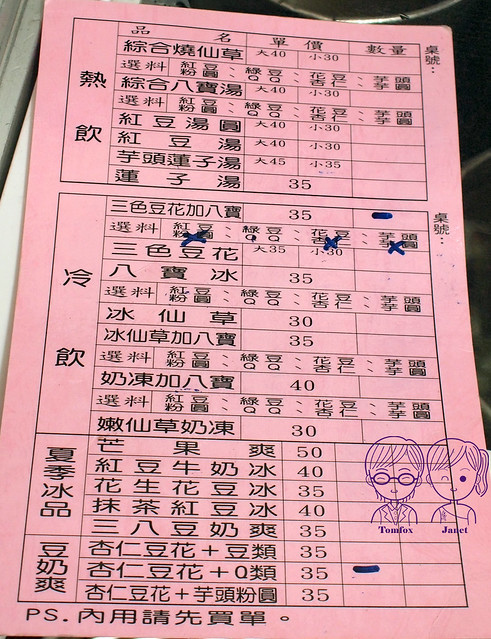 品名 單價 數量 桌號：
熱飲
綜合燒仙草 大40 小30
選料 紅豆、綠豆、花豆、芋頭
粉圓 QQ 杏仁 芋圓
綜合八寶湯 大40 小30
選料 紅豆、綠豆、花豆、芋頭
粉圓 QQ 杏仁 芋圓
紅豆湯圓 大40 小30
紅豆湯 大40 小30
芋頭蓮子湯 大45 小35
蓮子湯 35
冷飲
桌號：
三色豆花加八寶 35
選料 紅豆、綠豆、花豆、芋頭
粉圓 QQ 杏仁 芋圓
三色豆花 大35 小30
八寶冰 35
選料 紅豆、綠豆、花豆、芋頭
粉圓 QQ 杏仁 芋圓
冰仙草 30
冰仙草加八寶 35
選料 紅豆、綠豆、花豆、芋頭
粉圓 QQ 杏仁 芋圓
奶凍加八寶 40
選料 紅豆、綠豆、花豆、芋頭
粉圓 QQ 杏仁 芋圓
嫩仙草奶凍 30
夏季冰品
芒果爽 50
紅豆牛奶冰 40
花生花豆冰 35
抹茶紅豆冰 40
三八豆奶爽 35
豆奶爽
杏仁豆花＋豆類 35
杏仁豆花＋Q類 35
杏仁豆花＋芋頭粉圓 35
PS.內用請先買單。
Tomfox Janet